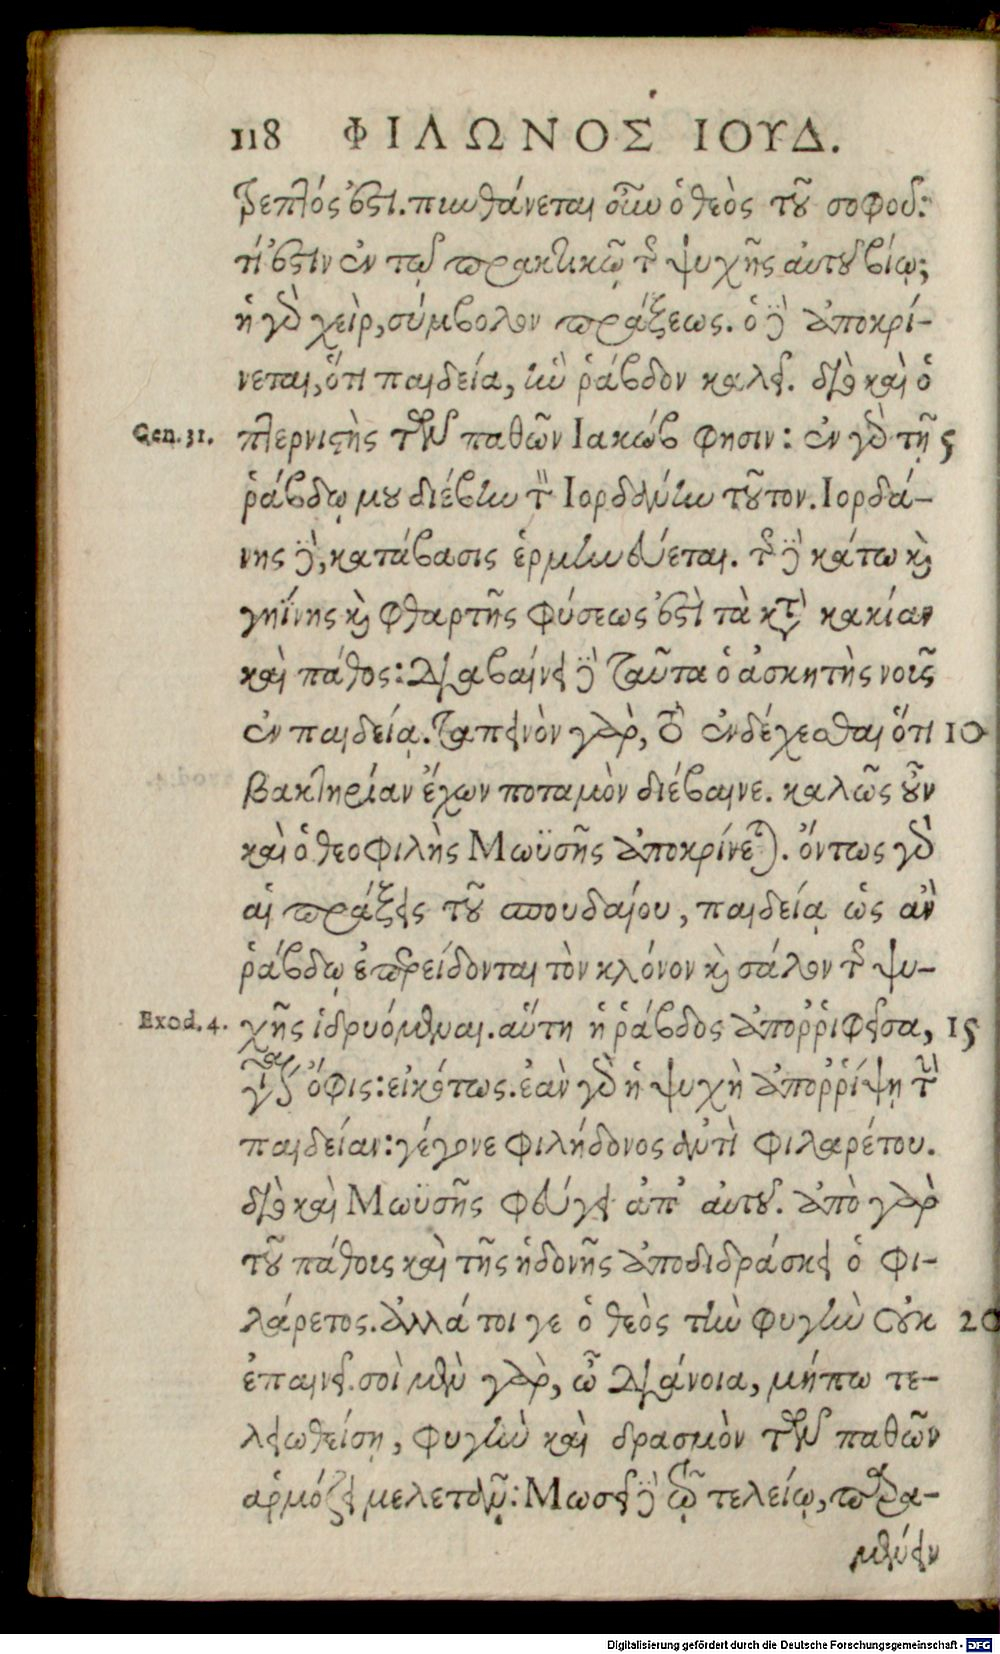 118 ΦΙΛΩΝΟΣ ΙΟΥΔ.
ῥεπτός ἐστι. πυνθάνεται οὖν ὁ θεὸς τοῦ σοφοῦ:
τί ἐστιν ἐν τῷ πρακτικῷ τῆς ψυχῆς αὐτοῦ βίῳ;
ἡ γὰρ χεὶρ, σύμβολον πράξεως. ὁ δὲ ἀποκρί-
νεται, ὅτι παιδεία, ἣν ῥάβδον καλεῖ. διὸ καὶ ὁ
Gen. 31. πτερνιστὴς τῶν παθῶν Ιακώβ φησιν: ἐν γὰρ τῇ 5
ῥάβδῳ μου διέβην τὸν Ιορδάνην τοῦτον. Ιορδά-
νης δὲ, κατάβασις ἑρμηνεύεται. τῆς δὲ κάτω καὶ
γηΐνης καὶ φθαρτῆς φύσεως ἐστὶ τὰ κατὰ κακίαν
καὶ πάθος: διαβαίνει δὲ ταῦτα ὁ ἀσκητὴς νοῦς
ἐν παιδείᾳ. ταπεινὸν γὰρ, τὸ ἐνδέχεσθαι ὅτι 10
βακτηρίαν ἔχων ποταμὸν διέβαινε. καλῶς οὖν
καὶ ὁ θεοφιλὴς Μωϋσῆς ἀποκρίνεται. ὄντως γὰρ
αἱ πράξεις τοῦ σπουδαίου, παιδείᾳ ὡς ἂν
ῥάβδῳ ἐπερείδονται τὸν κλόνον καὶ σάλον τῆς ψυ-
Exod. 4. χῆς ἱδρυόμεναι. αὕτη ἡ ῥάβδος ἀποῤῥιφεῖσα, 15
γίνεται ὄφις: εἰκότως. ἐὰν γὰρ ἡ ψυχὴ ἀποῤῥίψῃ τὴν
παιδείαν: γέγονε φιλήδονος ἀντὶ φιλαρέτου.
διὸ καὶ Μωϋσῆς φεύγει ἀπ' αὐτοῦ. ἀπὸ γὰρ
τοῦ πάθους καὶ τῆς ἡδονῆς ἀποδιδράσκει ὁ φι-
λάρετος. ἀλλά τοι γε ὁ θεὸς τὴν φυγὴν οὐκ 20
ἐπαινεῖ. σοὶ μὲν γὰρ, ὦ διάνοια, μήπω τε-
λειωθείσῃ, φυγὴν καὶ δρασμὸν τῶν παθῶν
ἁρμόζει μελετᾶν: Μωσεῖ δὲ τῷ τελείῳ, παρα-
μένειν
Digitalisierung gefördert durch die Deutsche Forschungsgemeinschaft - DFG